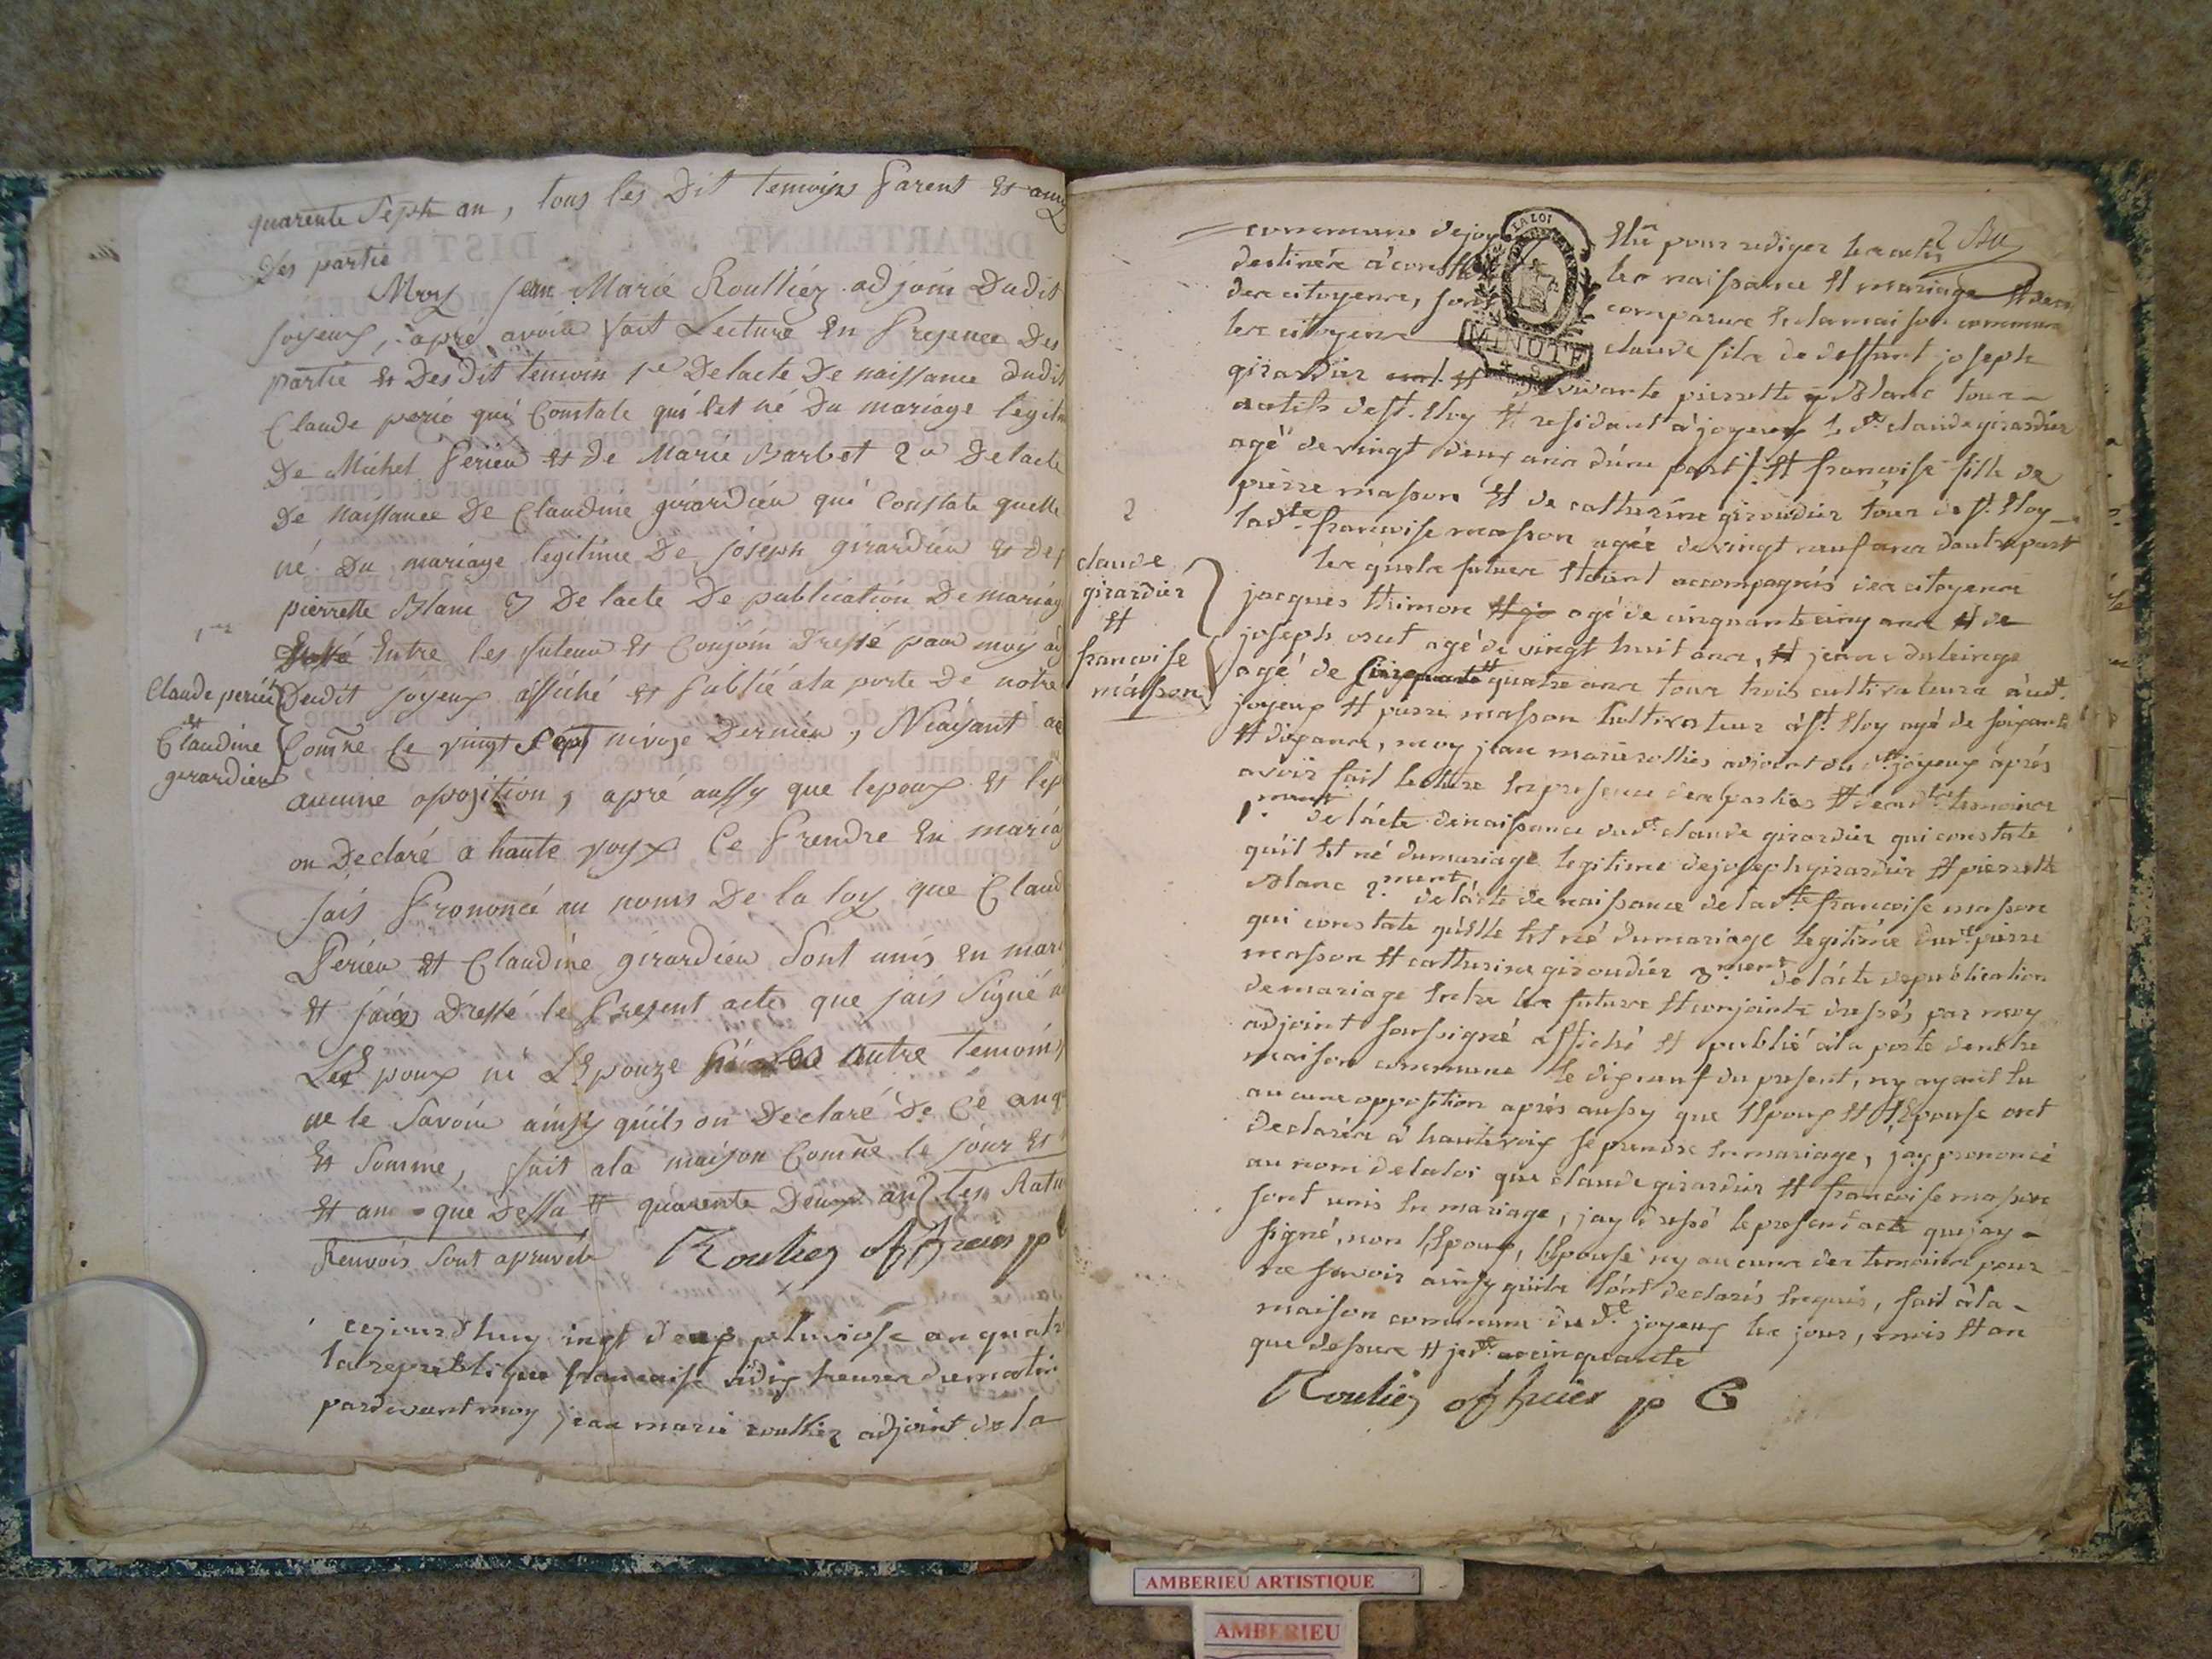 quarente Sept an, tous les Dit temoins parent et amis
Des partie
Moy jean Marie Roulliez adjoin Dudit
joyeux, apré avoir fait Lecture En Presence Des
partie et Des dit temoin 1re De lacte De naissance dudit
Claude perié qui Constate quil est né Du mariage legitim
De Michel Perieu et De Marie Barbet 2a De lacte
De Naissance De Claudine girardieu qui Constate quelle
né Du mariage legitime De joseph girardieu et De
pierrette Blanc 3 De lacte De publication De mariag
Entre les futeur et Conjoin Dressé par moy a
Dudit joyeux affiché et Publié a la porte De notre
Comne le vingt Sept nivoze Dernieu, N'iayant
aucune oposition, apré aussy que lepoux et lep
on Declaré a haute voyx Ce Prendre En maria
jais Prononcé au noms De la loy que Claud
Perieu et Claudine girardieu Sont unis En mari
et jaies Dressé le Present acte que jais Signé n
Les poux ni LEpouze autre temoins
ne le Savoir ainsy quils on Declaré De Ce
et Somme, fait a la maison Comne le jour et
et an que Dessu et quarente Deux an les Ratu
Renvois Sont apruvéé Rouliez officier p
1re
Claude perieu
et
Claudine
girardieu
cejourd'huy ingt deux pluviose an quatr
la republique francaise a dix heures du matin
pardevant moy jean marie roullier adjoint de la
2
claude
girardier
et
francoise
masson
commune de joy Elu pour rediger les actes
destinéer a const les naissance et mariage et
des citoyens, sont comparus En la maison commune
les citoyens claude fils de deffunt joseph
girardier et de vivante pierrette Blanc tous
natifs de St. Eloy et residant a joyeux le dt. claude girardier
agé de vingt deux ans d'une part et francoise fille de
pierre masson et de catherine giroudier tous de St. Eloy
ladte. francoise masson agée de vingt neuf ans d'autre part
les quels futurs Etoient accompagnés des citoyens
jacques agé de cinquante cinq ans et de
joseph agé de vingt huit ans, et jean
agé de quatre ans tous trois cultivateurs audt.
joyeux et pierre masson Cultivateur a St. Eloy agé de soixante
et dix ans, moy jean marie rollies adjoint du dt. joyeux après
avoir fait lecture En presence des parties et des dts. temoins
1.ment de lacte de naissance dudt. claude girardier qui constate
qu'il Est né du mariage legitime de joseph girardier et pierrette
Blanc 2.ment de lacte de naissance de ladte. francoise masson
qui constate qu'Elle Est né du mariage legitime dudt. pierre
masson et catherine giroudier 3.ment de lacte de publication
de mariage Entre les futurs et conjoints dressés par moy
adjoint sousigné affiché et publié a la porte de notre
maison commune le dix neuf du present, ny ayant Eu
aucune opposition après aussy que lEpoux et lEpouse ont
declarés a haute voix se prendre En mariage, j'ay prononcé
au nom de la loi que claude girardier et francoise masson
sont unis En mariage, jay dressé le present acte que jay
signé, non lEpoux, lEpouse ny aucuns des temoins pour
ne savoir ainsy qu'ils l'ont declarés Enquis, fait a la
maison commune du dt. joyeux les jour, mois et an
que dessus
Rouliez officier p C
LA LOI
MINUTE
AMBERIEU ARTISTIQUE
AMBERIEU